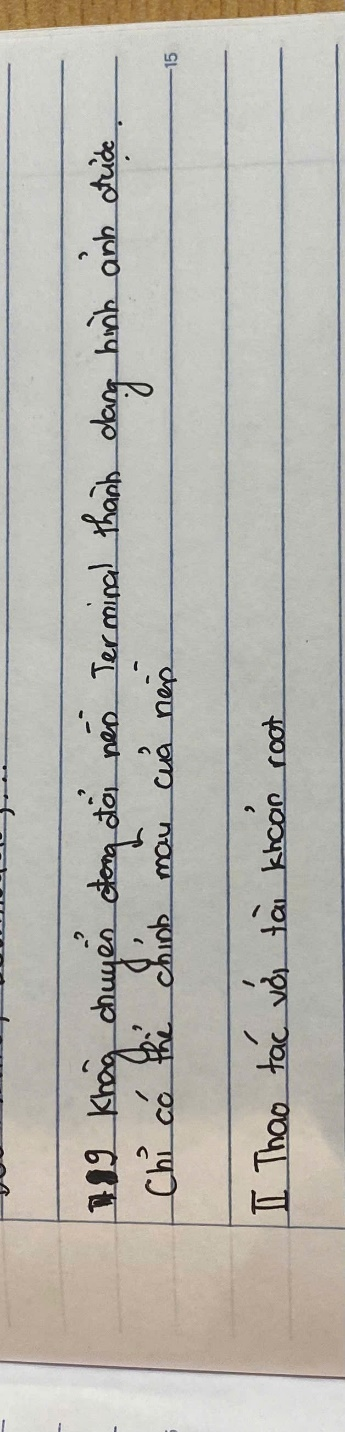 9 Không chuyển đổi nền Terminal thành dạng hình ảnh được.
Chỉ có thể chỉnh màu của nền
II Thao tác với tài khoản root
15